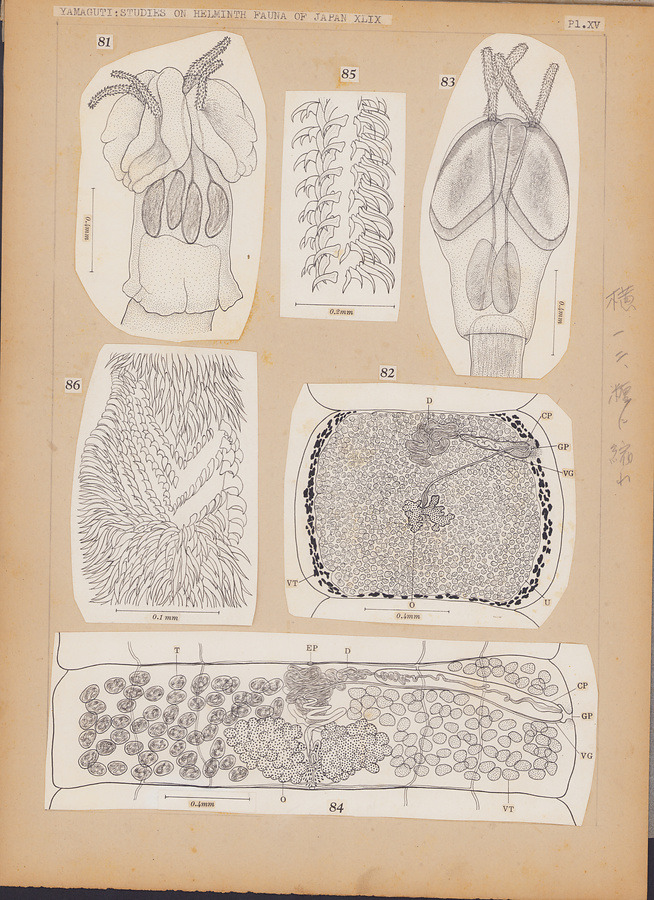 YAMAGUTI:STUDIES ON HELMINTH FAUNA OF JAPAN XLIX
Pl.XV
81
0.4mm
85
0.2mm
83
0.4mm
86
0.1mm
82
D
CP
GP
VG
VT
O
U
0.4mm
T
EP
D
CP
GP
VG
O
VT
0.4mm
84